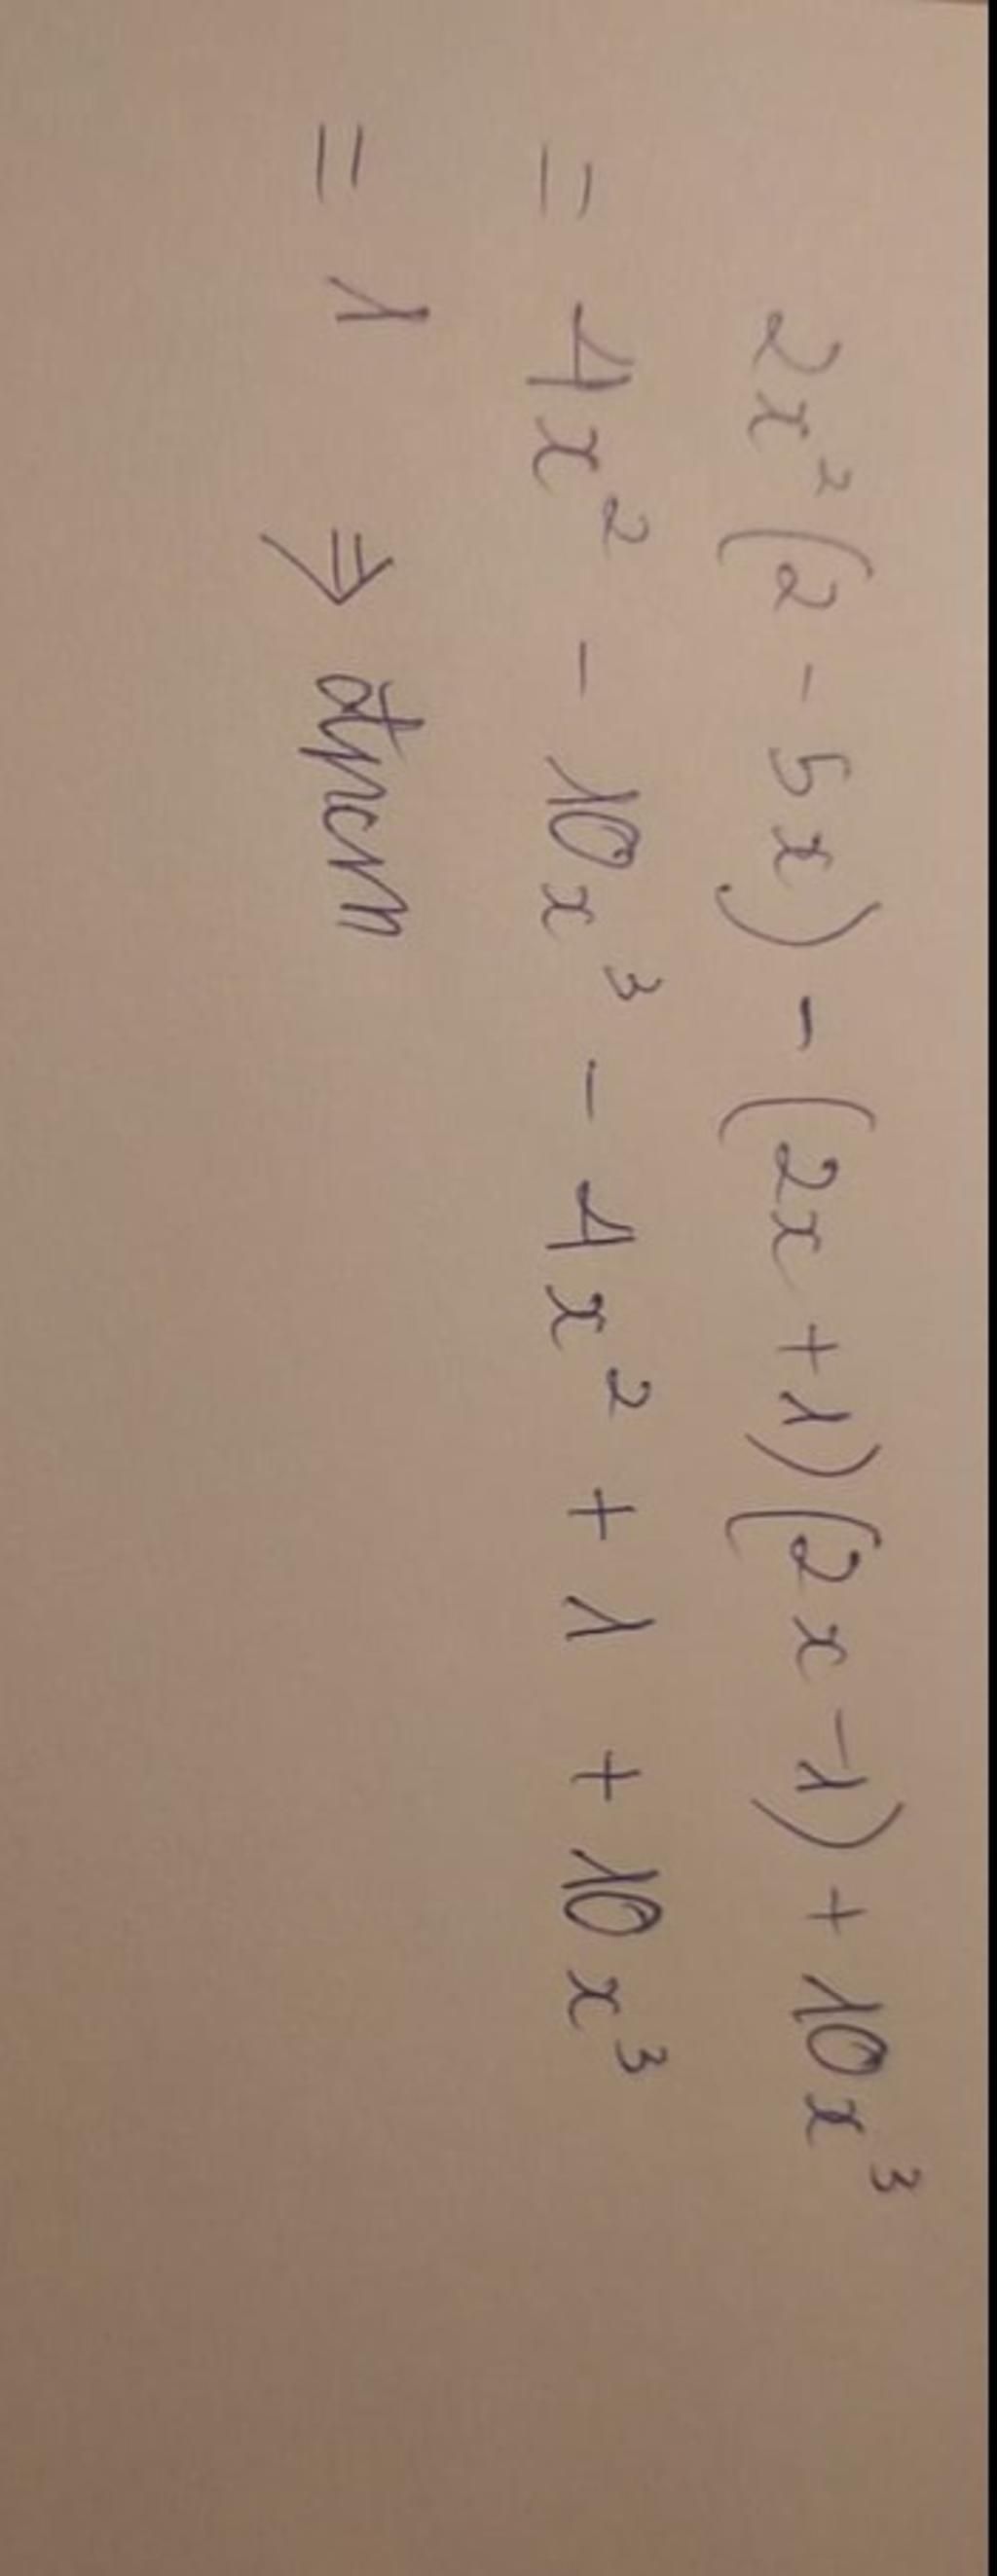 2x²(2 - 5x) - (2x + 1)(2x - 1) + 10x³
= 4x² - 10x³ - 4x² + 1 + 10x³
= 1 ⇒ đpcm